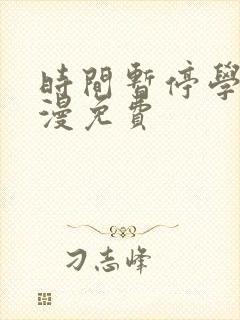 時間暫停學
漫免費
刁志峰